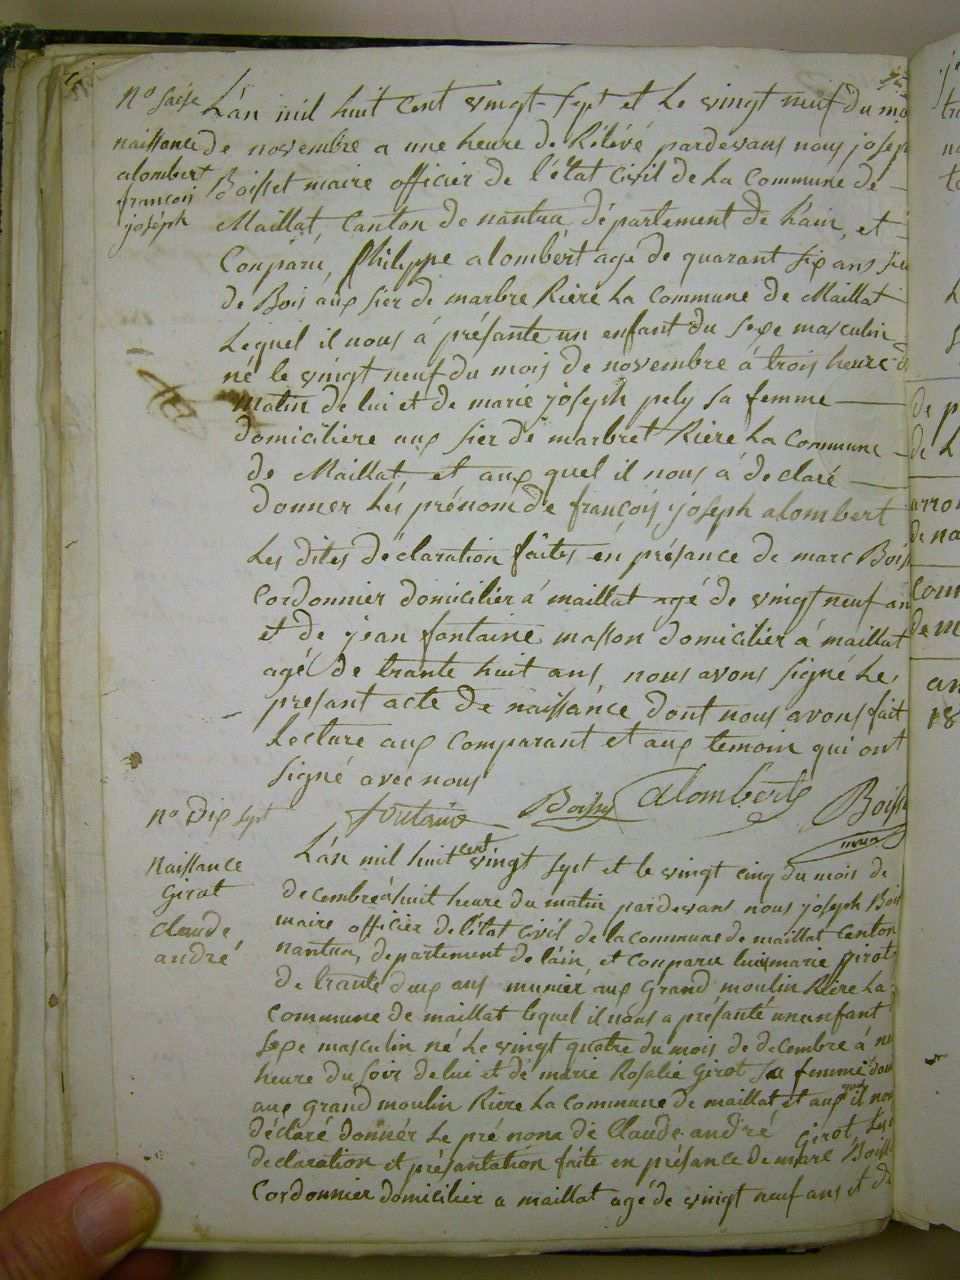 no saise
naissance
alombert
francois
joséph
L'an mil huit cent vingt-sept et le vingt neuf du mo
de novembre a une heure de Rélévé pardevans nous joseph
Boisset maire officier de l'état civil de La Commune de
Maillat, Canton de nantua, département de L'ain, et
Conparu, philippe alombert agé de quarant six ans
de Bois aux sier de marbre Rière La Commune de Maillat
Lequel il nous à présante un enfant du sexe masculin
né le vingt neuf du mois de novembre à trois heure d
matin de lui et de marie joseph pely sa femme
domiciliere aux sier de marbret Riere La Commune
de Maillat et aux quel il nous à declaré
donner Lés prénom de françois joseph alombert
Les dites déclaration faites en présance de marc Bois
Cordonnier domicilier à maillat agé de vingt neuf an
et de jean fontaine masson domicilier à maillat
agé de trante huit ans, nous avons signé Le
presant acte de naissance dont nous avons fait
Lecture aux Comparant et aux temoin qui ont
signé avec nous
fontaine Boissy alombert Boiss
maire
no Dix sept
Naissance
Girot
claude
andré
L'an mil huit cent vingt sept et le vingt cinq du mois de
decembre à huit heure du matin pardevans nous joseph Bois
maire officier de l'état civil de la commune de maillat Canton
nantua, departement de lain, et Conparu marie girot
de trante deux ans munier aux Grand moulin Rière La
Commune de maillat lequel il nous a présanté un enfant
sexe masculin né Le vingt quatre du mois de decembre à n
heure du soir de lui et de marie Rosalie Girot sa femme dom
aux grand moulin Riere La commune de maillat et aux quel il nou
déclaré donnér Le pré nome de Claude andré Girot Les
declaration et présantation faite en présance de marc Boiss
Cordonnier domicilier a maillat agé de vingt neuf ans et de